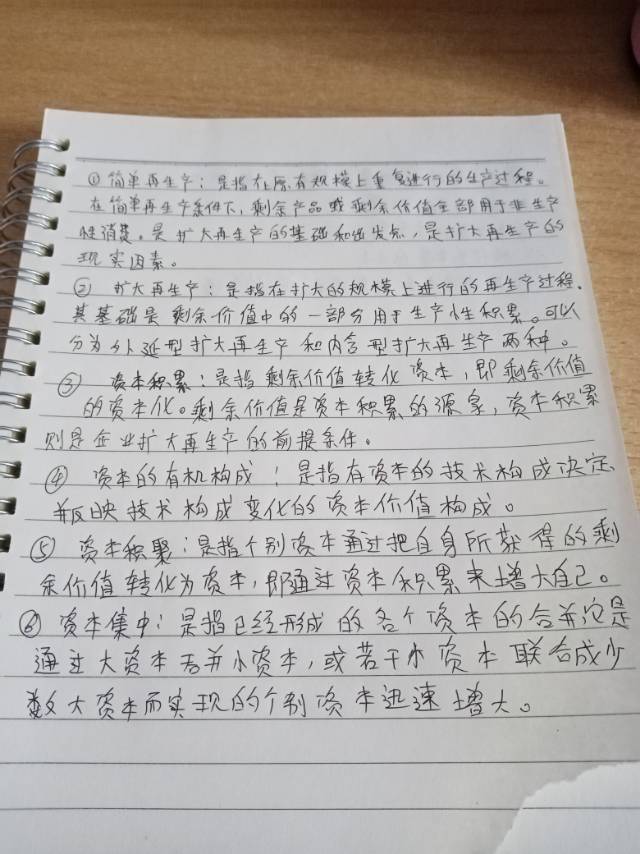 ①简单再生产：是指在原有规模上重复进行的生产过程。
在简单再生产条件下，剩余产品或剩余价值全部用于非生产
性消费。是扩大再生产的基础和出发点，是扩大再生产的
现实因素。
② 扩大再生产：是指在扩大的规模上进行的再生产过程.
其基础是剩余价值中的一部分用于生产性积累。可以
分为外延型扩大再生产和内含型扩大再生产两种。
③ 资本积累：是指剩余价值转化资本，即剩余价值
的资本化。剩余价值是资本积累的源泉，资本积累
则是企业扩大再生产的前提条件。
④ 资本的有机构成：是指有资本的技术构成决定
并反映技术构成变化的资本价值构成。
⑤ 资本积聚：是指个别资本通过把自身所获得的剩
余价值转化为资本，即通过资本积累来增大自己。
⑥ 资本集中：是指已经形成的各个资本的合并它是
通过大资本吞并小资本，或若干小资本联合成少
数大资本而实现的个别资本迅速增大。